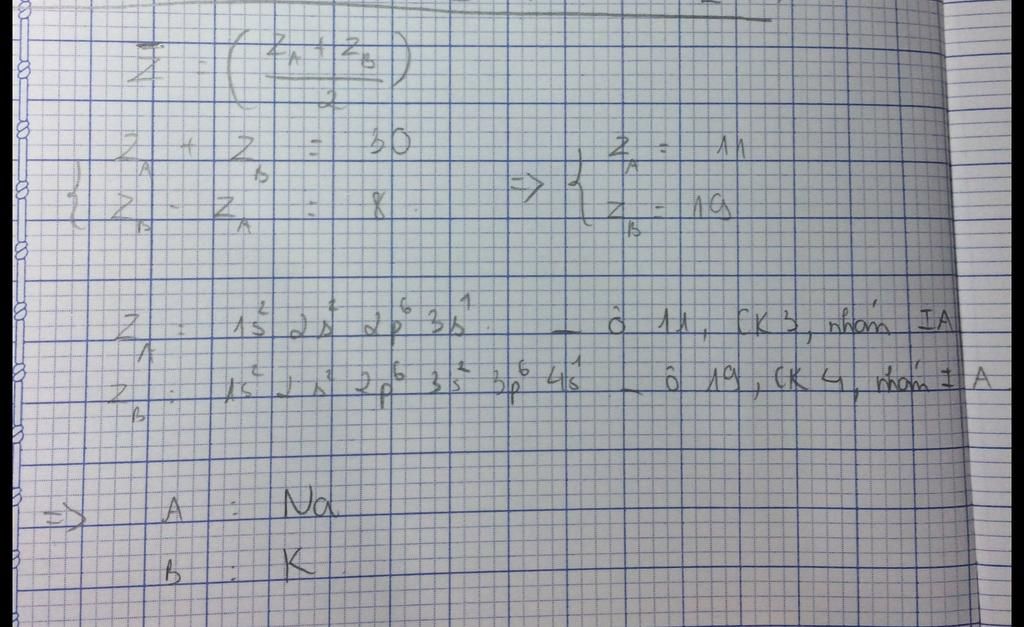 Z̄ = ( (Z_A + Z_B) / 2 )
{ Z_A + Z_B = 30 => { Z_A = 11
Z_B - Z_A = 8 Z_B = 19
Z_A = 1s² 2s² 2p⁶ 3s¹ _ ô 11, CK 3, nhóm IA
Z_B : 1s² 2s² 2p⁶ 3s² 3p⁶ 4s¹ _ ô 19, CK 4, nhóm I A
=> A : Na
B : K